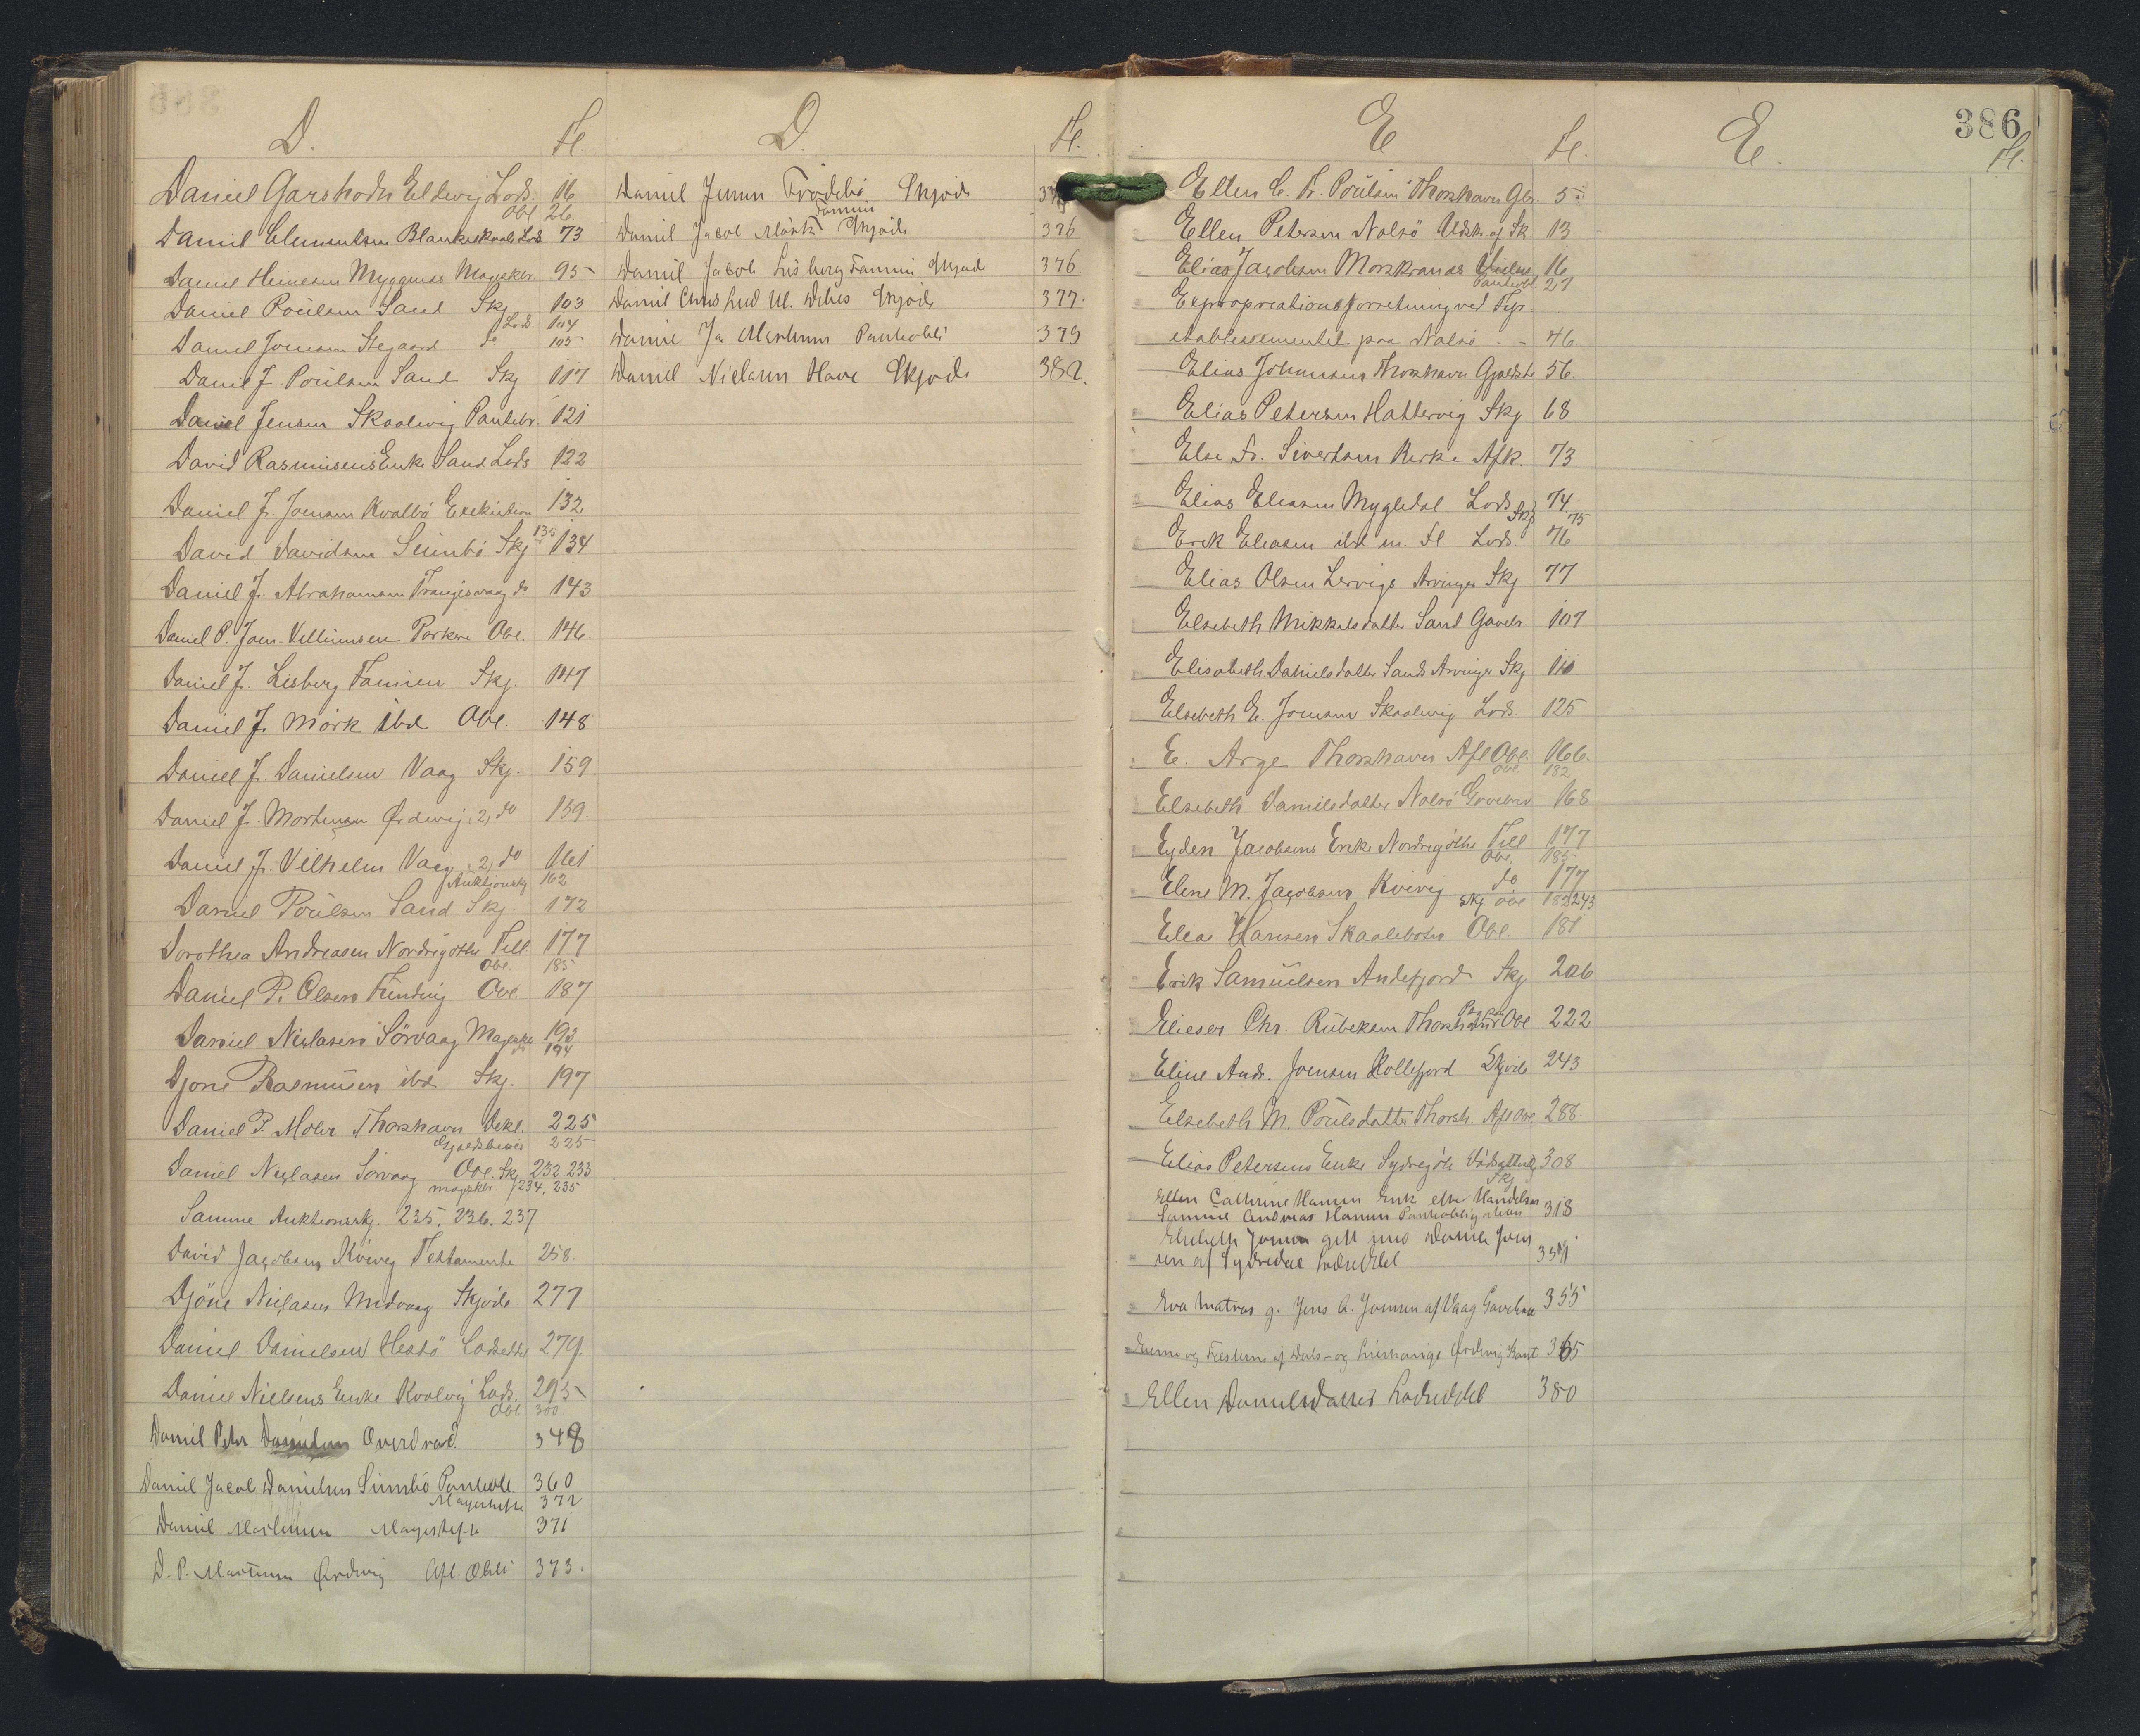 D. Fl.
Daniel Garshodn Eldevig Lods. 16
Obl 26
Daniel Clementsen Blankeskaale Lods 73
Daniel Heinesen Myggenæs Mageskbr. 95
Daniel Poulsen Sand Skj 103
Lods 104
Daniel Joensen Stegaard do 105
Daniel J. Poulsen Sand Skj 117
Daniel Jensen Skaalevig Pantebr. 121
David Rasmussens Enke Sand Lods 122
Daniel J. Joensen Kvalbö Exekution 132
David Davidsen Sumbö Skj 135 134
Daniel J. Abrahamsen Trangisvaag do 143
Daniel P. Joen. Vilhelmsen Porkere Obl. 146.
Daniel J. Lisberg Famien Skj. 147
Daniel J. Mörk ibd Obl. 148
Daniel J. Danielsen Vaag Skj. 159
Daniel J. Mortensen Ördevig, 2, do 159.
Daniel J. Vilhelm Vaag, 2, do 161
Auktionsskj 162
Daniel Poulsen Sand Skj. 172
Dorothea Andreasen Nordregöthe Till 177
Obl. 185
Daniel P. Olsen Funding Obl 187
Daniel Niclasen Sörvaag Mageskbr 193
do 194
Djone Rasmussen ibd Skj. 197
Daniel P. Moler Thorshavn Dekl. 225
Gjældsbevis 225
Daniel Niclasen Sörvaag Obl. Skj 232 233
mageskbr. 234, 235
Samme Auktionsskj. 235, 236, 237
David Jacobsen Kvivig Testamente 258.
Djöne Niclasen Midvaag Skjöde 277
Daniel Danielsen Hestö Lodseddel 279.
Daniel Nielsens Enke Kvalvig Lods. 295
Obl 300
Daniel Peter Danielsen Overdrad. 348
Daniel Jacob Danielsen Sumbö Pantobl. 360
Mageskifte 372
Daniel Mortensen Mageskifte 371
D. P. Mortensen Ördevig Afl. Obli 373.
D. Fl.
Daniel Jensen Frodebö Skjöde
Famien
Daniel Jacob Mörk Skjöde 376
Daniel Jacob Lisberg Famien Skjöde 376
Daniel Skjöde 377.
Daniel Ja Mortensen Pantobli 379
Daniel Niclasen Hove Skjöde 382.
E Fl.
Ellen C. Fr. Poulsen Thorshavn Gbr. 5
Ellen Petersen Nolsö Udskr. af Sk 13
Elias Jacobsen Morskranæs 16
Pantobl. 27
Expropriationsforretning ved Fyr-
etablissementet paa Nolsö - - 46
Elias Johansen Thorshavn Gjældsbr 56
Elias Petersen Hattervig Skj 68
Else Fr. Sivertsen Kirke Afk. 73
Elias Eliasen Mygledal Lods 74
Skj 75
Erik Eliasen ibd m. fl. Lods. 76
Elias Olsen Lervigs Arvinger Skj 77
Elsebeth Mikkelsdatter Sand Gavebr. 107
Elisabeth Danielsdatter Sands Arvinger Skj 110
Elsebeth E. Joensen Skaalevig Lods. 125
E. Arge Thorshavn Afl Obl. 166.
Obl. 182
Elsebeth Danielsdatter Nolsö Gavebrev 168
Eyden Jacobsens Enke Nordregöthe Till 177
Obl. 185
Elene M. Jacobsen Kvivig do 177
Skj Obl 183 243
Elias Hansen Skaalebotn Obl. 181
Erik Samuelsen Andefjord Skj 206
Elieser Chr. Rubeksen Thorshavn Obl 222
Eline Andr. Joensen Kollefjord Skjöde 243
Elsebeth M. Poulsdatter Thorsh. Afl Obl 288
Elias Petersens Enke Sydregöte 308
Skj
Ellen Cathrine Hansen Enke efter Handelsm
Samuel Andreas Hansen Pantobligation 318
Elsebeth Joensen gift med Daniel Joen
sen af Sydredal Lodseddel 351
Eva Matras g. Jens A. Joensen af Vaag Gavebrev 355
Eierne og Fæsterne af Dals- og Ördevig 365
Ellen Danielsdatter Lodseddel 380
386
E. Fl.